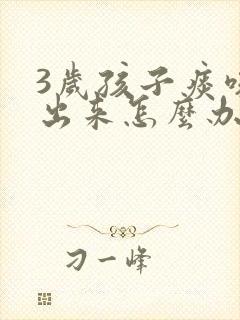 3歲孩子痰咳
出来怎麼办
刁一峰